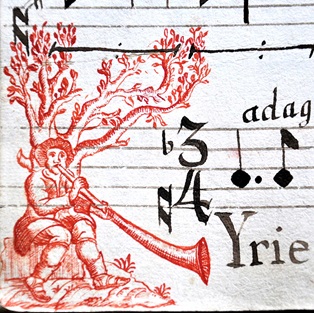 adag
3
4
Yrie